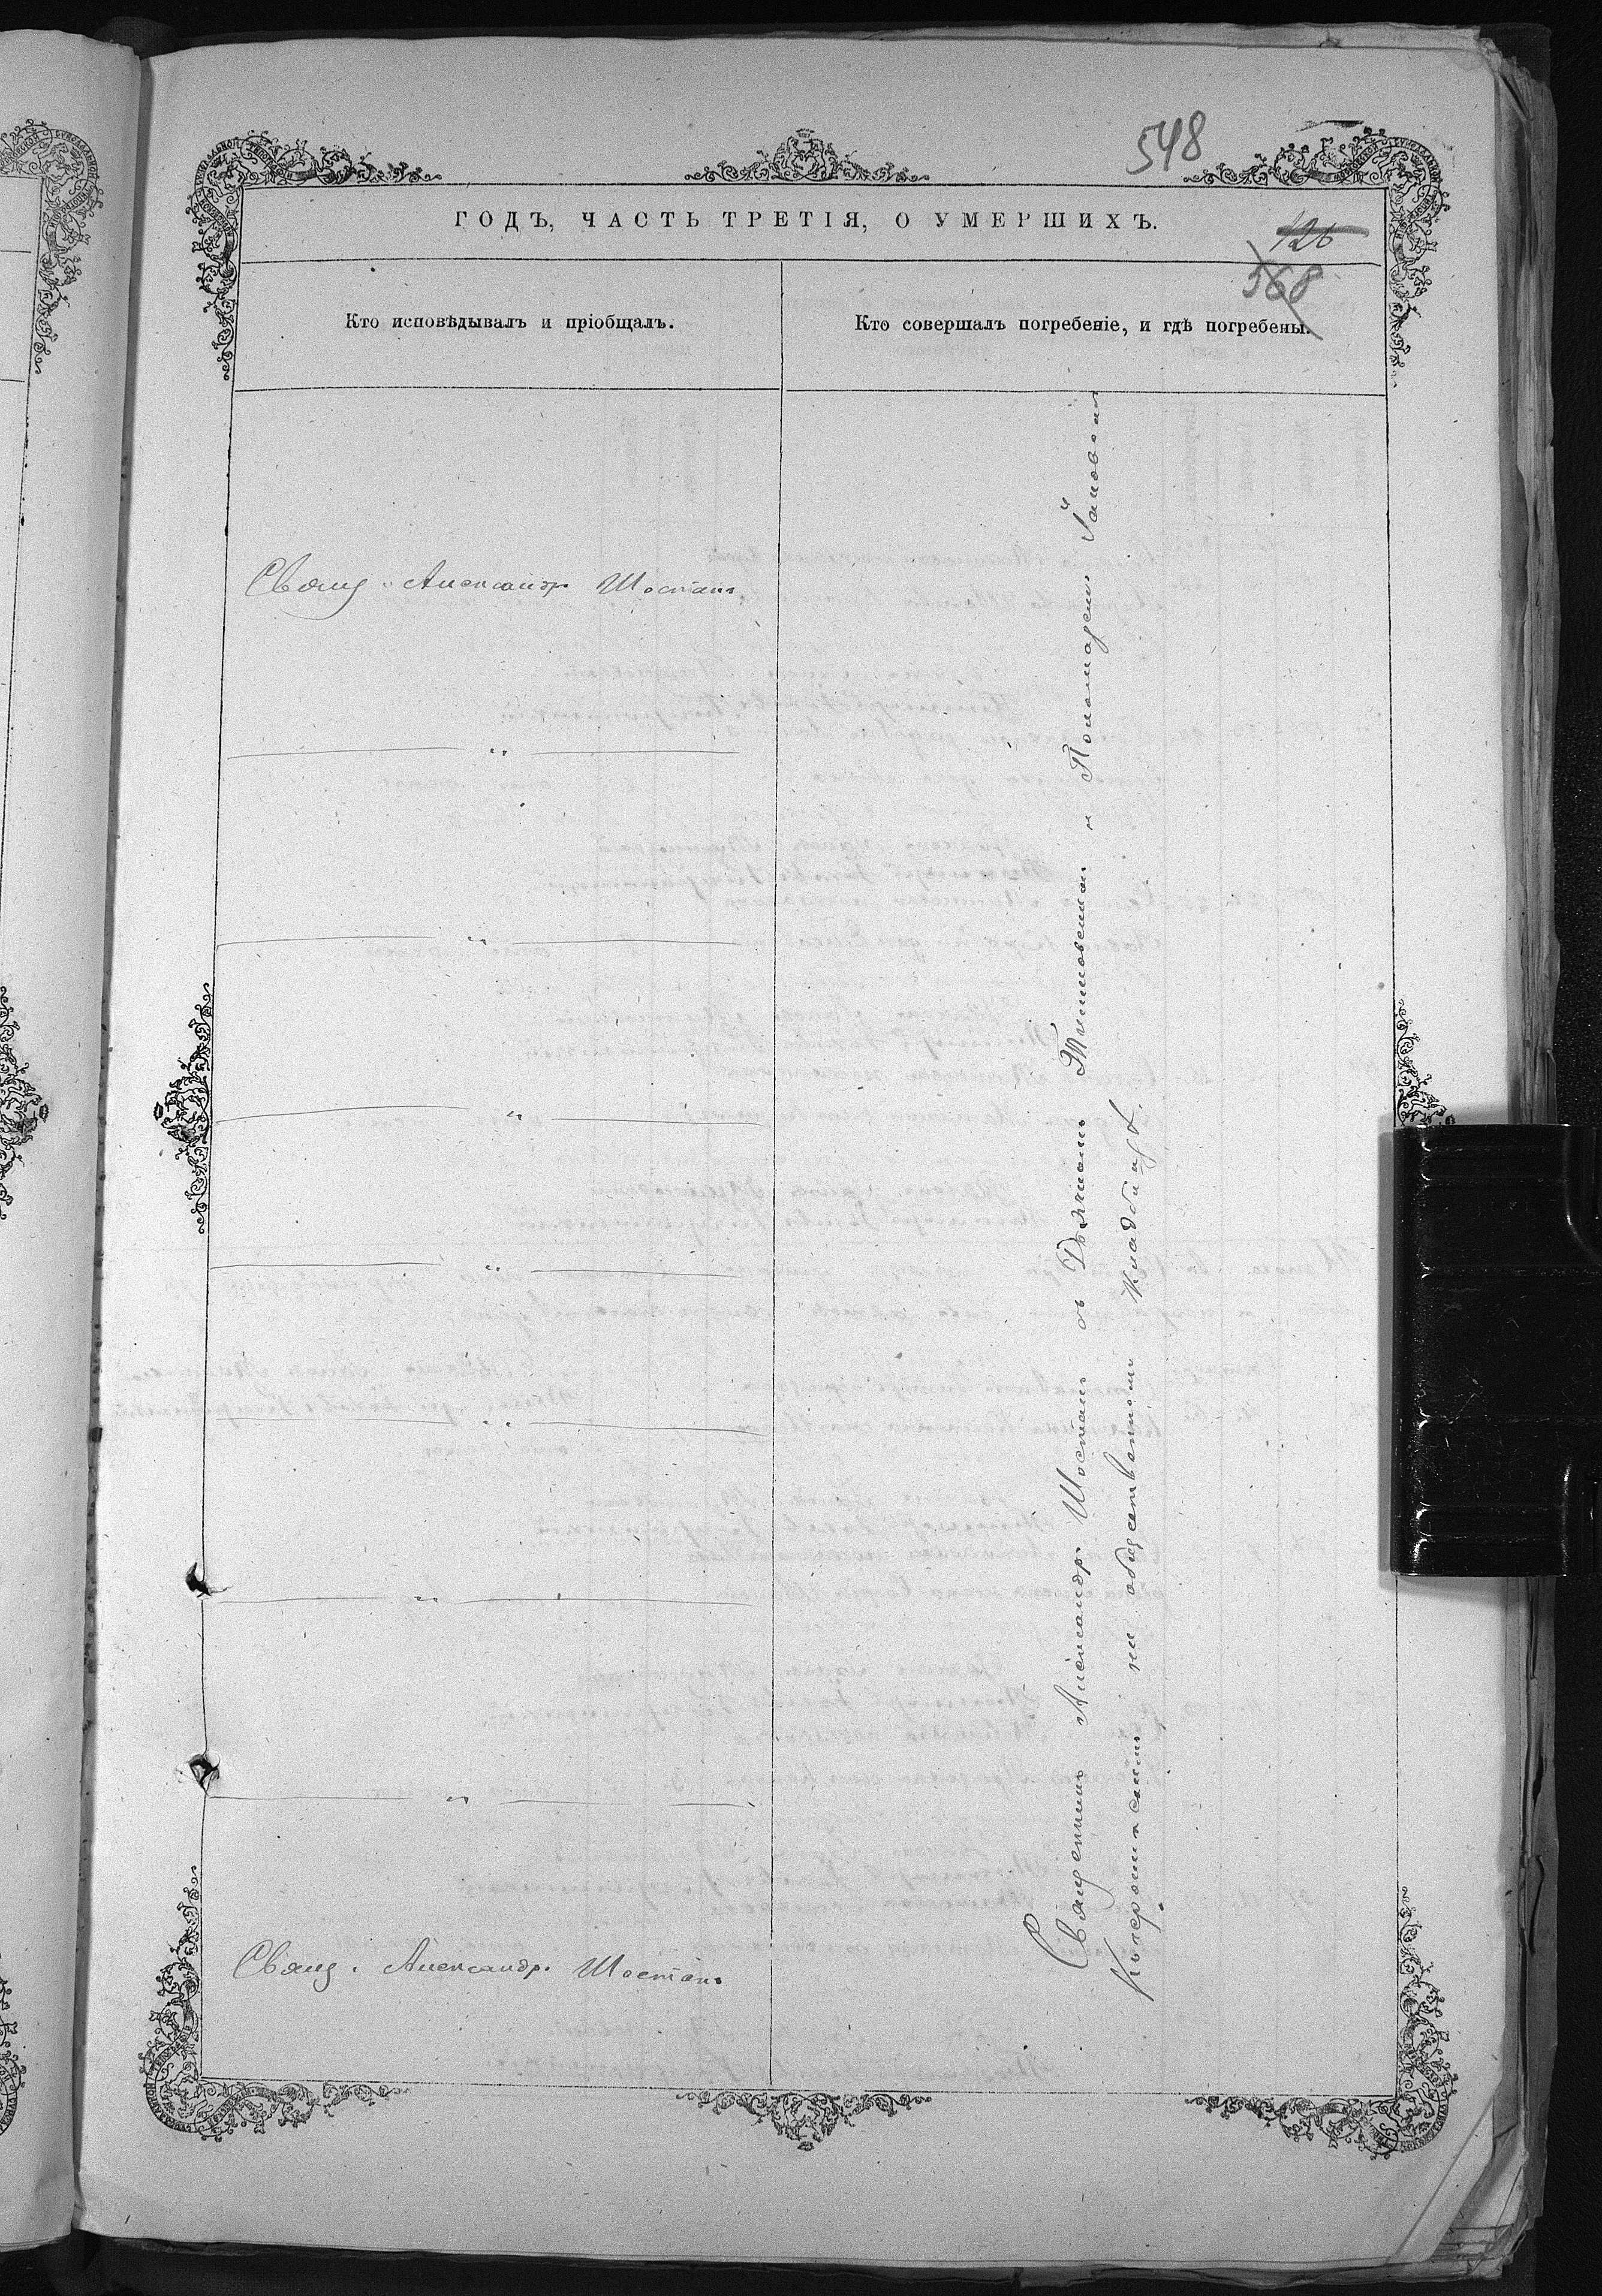 548
ГОДЪ, ЧАСТЬ ТРЕТІЯ, О УМЕРШИХЪ.
126
568
Кто исповѣдывалъ и пріобщалъ.
Кто совершалъ погребеніе, и гдѣ погребены.
Свящ. Александр Шостакъ
"
"
"
"
"
"
"
Свящ. Александр. Шостакъ
Священникъ Александр. Шостакъ съ Дьячкомъ и Пономаремъ
на общественномъ кладбищѣ.